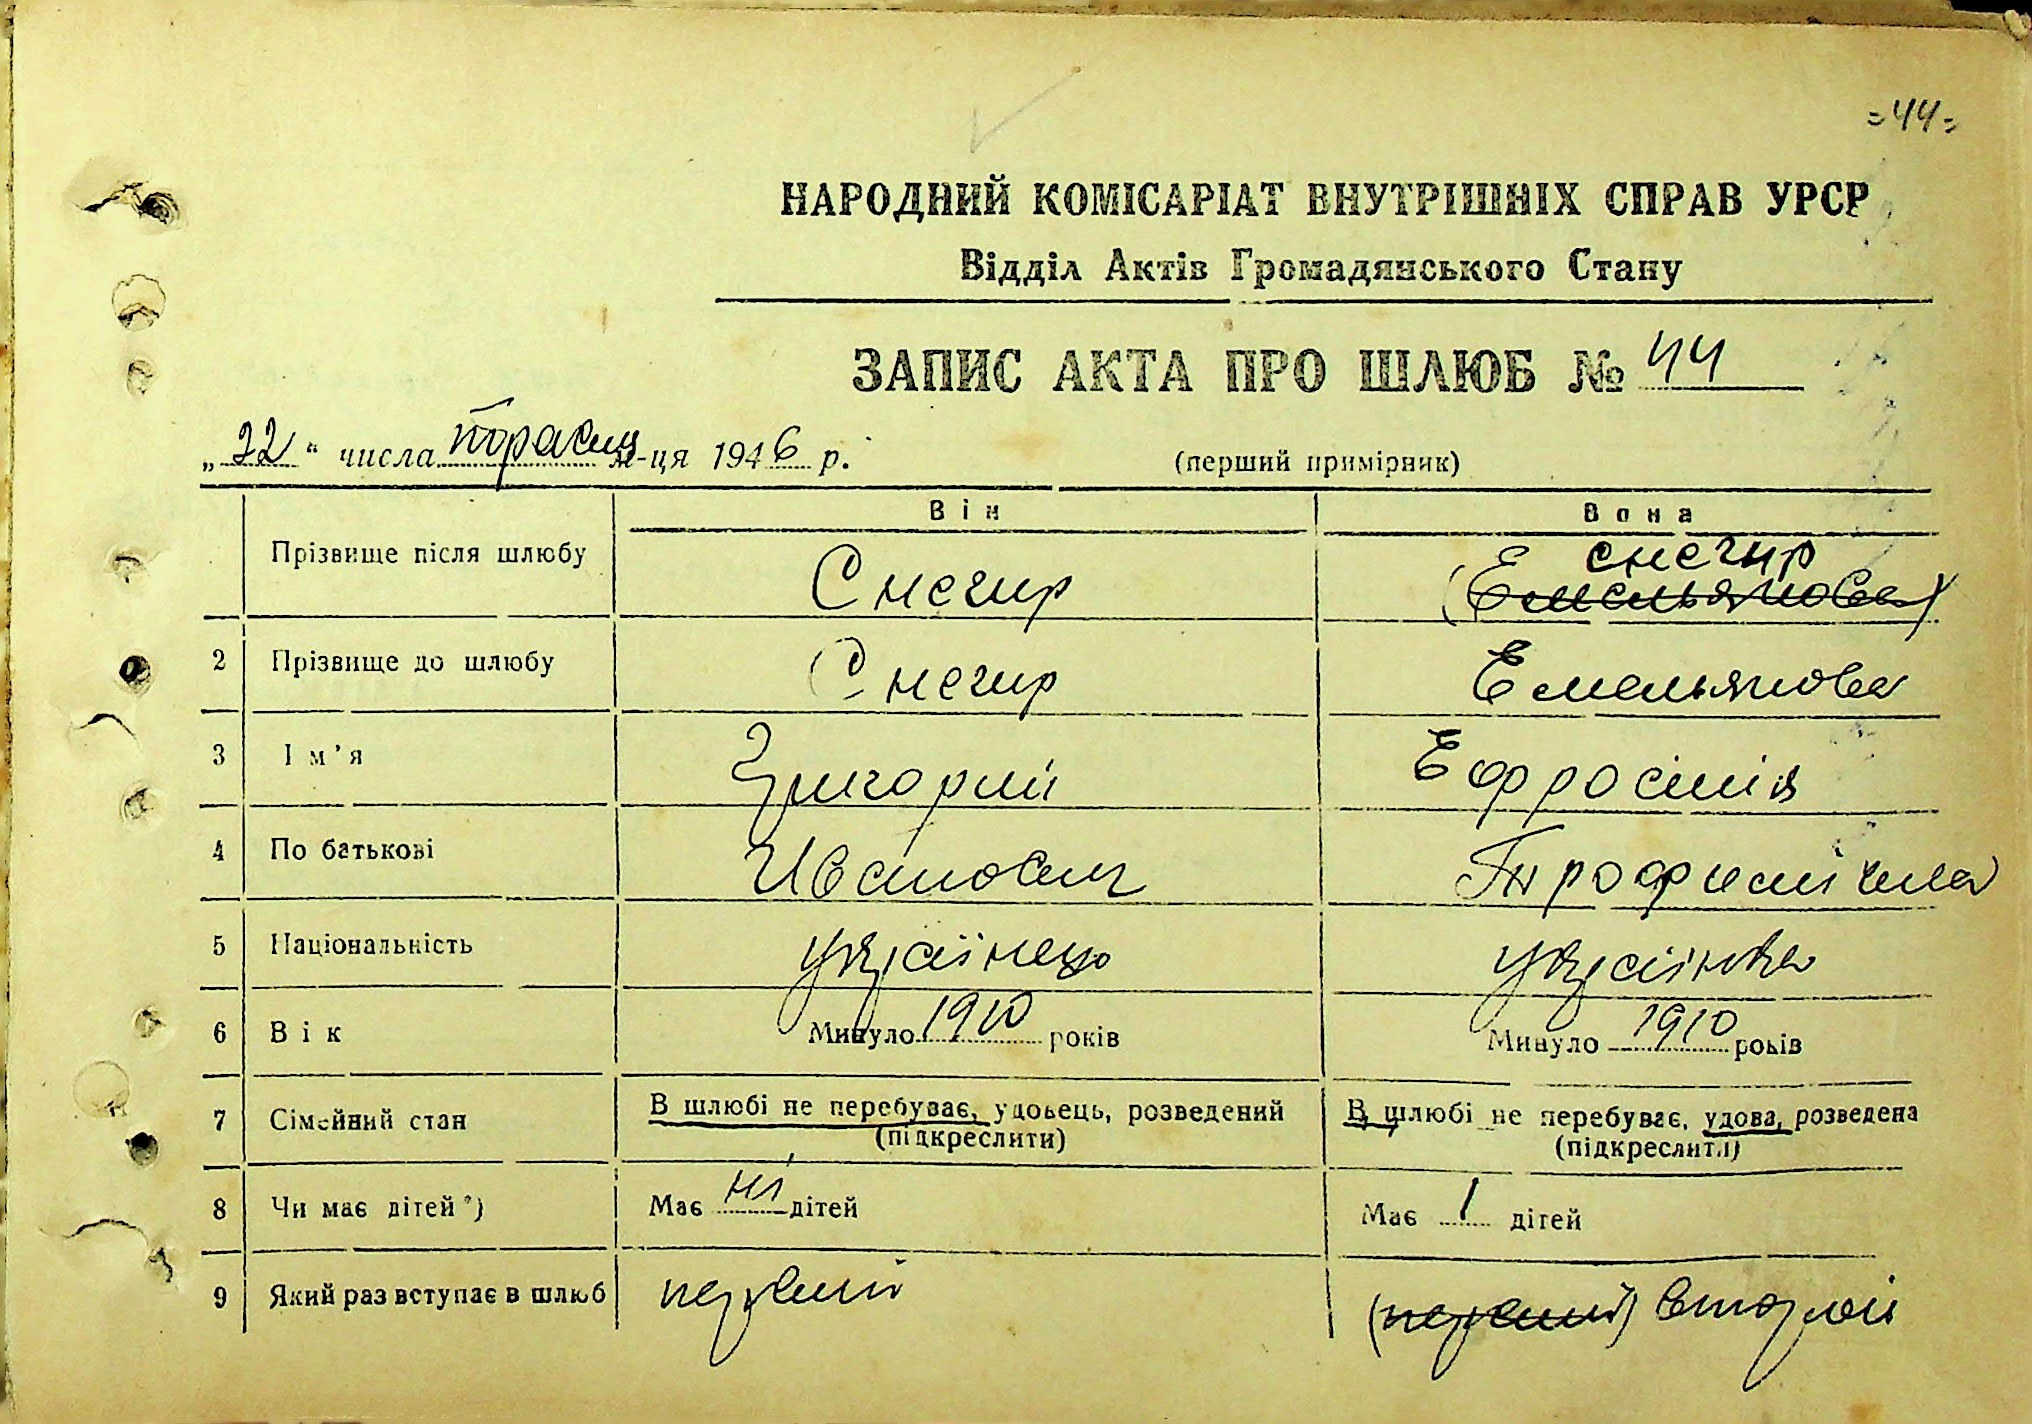 =44=
НАРОДНИЙ КОМІСАРІАТ ВНУТРІШНІХ СПРАВ УРСР
Відділ Актів Громадянського Стану
ЗАПИС АКТА ПРО ШЛЮБ № 44
„22“ числа м-ця 1946 р.
(перший примірник)
Він Вона
Прізвище після шлюбу Снегир Снегир (Емельянова)
2 Прізвище до шлюбу Снегир Емельянова
3 Ім'я Григорий Ефросінія
4 По батькові Иванович Трофимівна
5 Національність українець українка
6 Вік Минуло 1910 років Минуло 1910 років
7 Сімейний стан В шлюбі не перебуває, удовець, розведений В шлюбі не перебуває, удова, розведена
(підкреслити) (підкреслити)
8 Чи має дітей*) Має ні дітей Має 1 дітей
9 Який раз вступає в шлюб первий (первий) второй